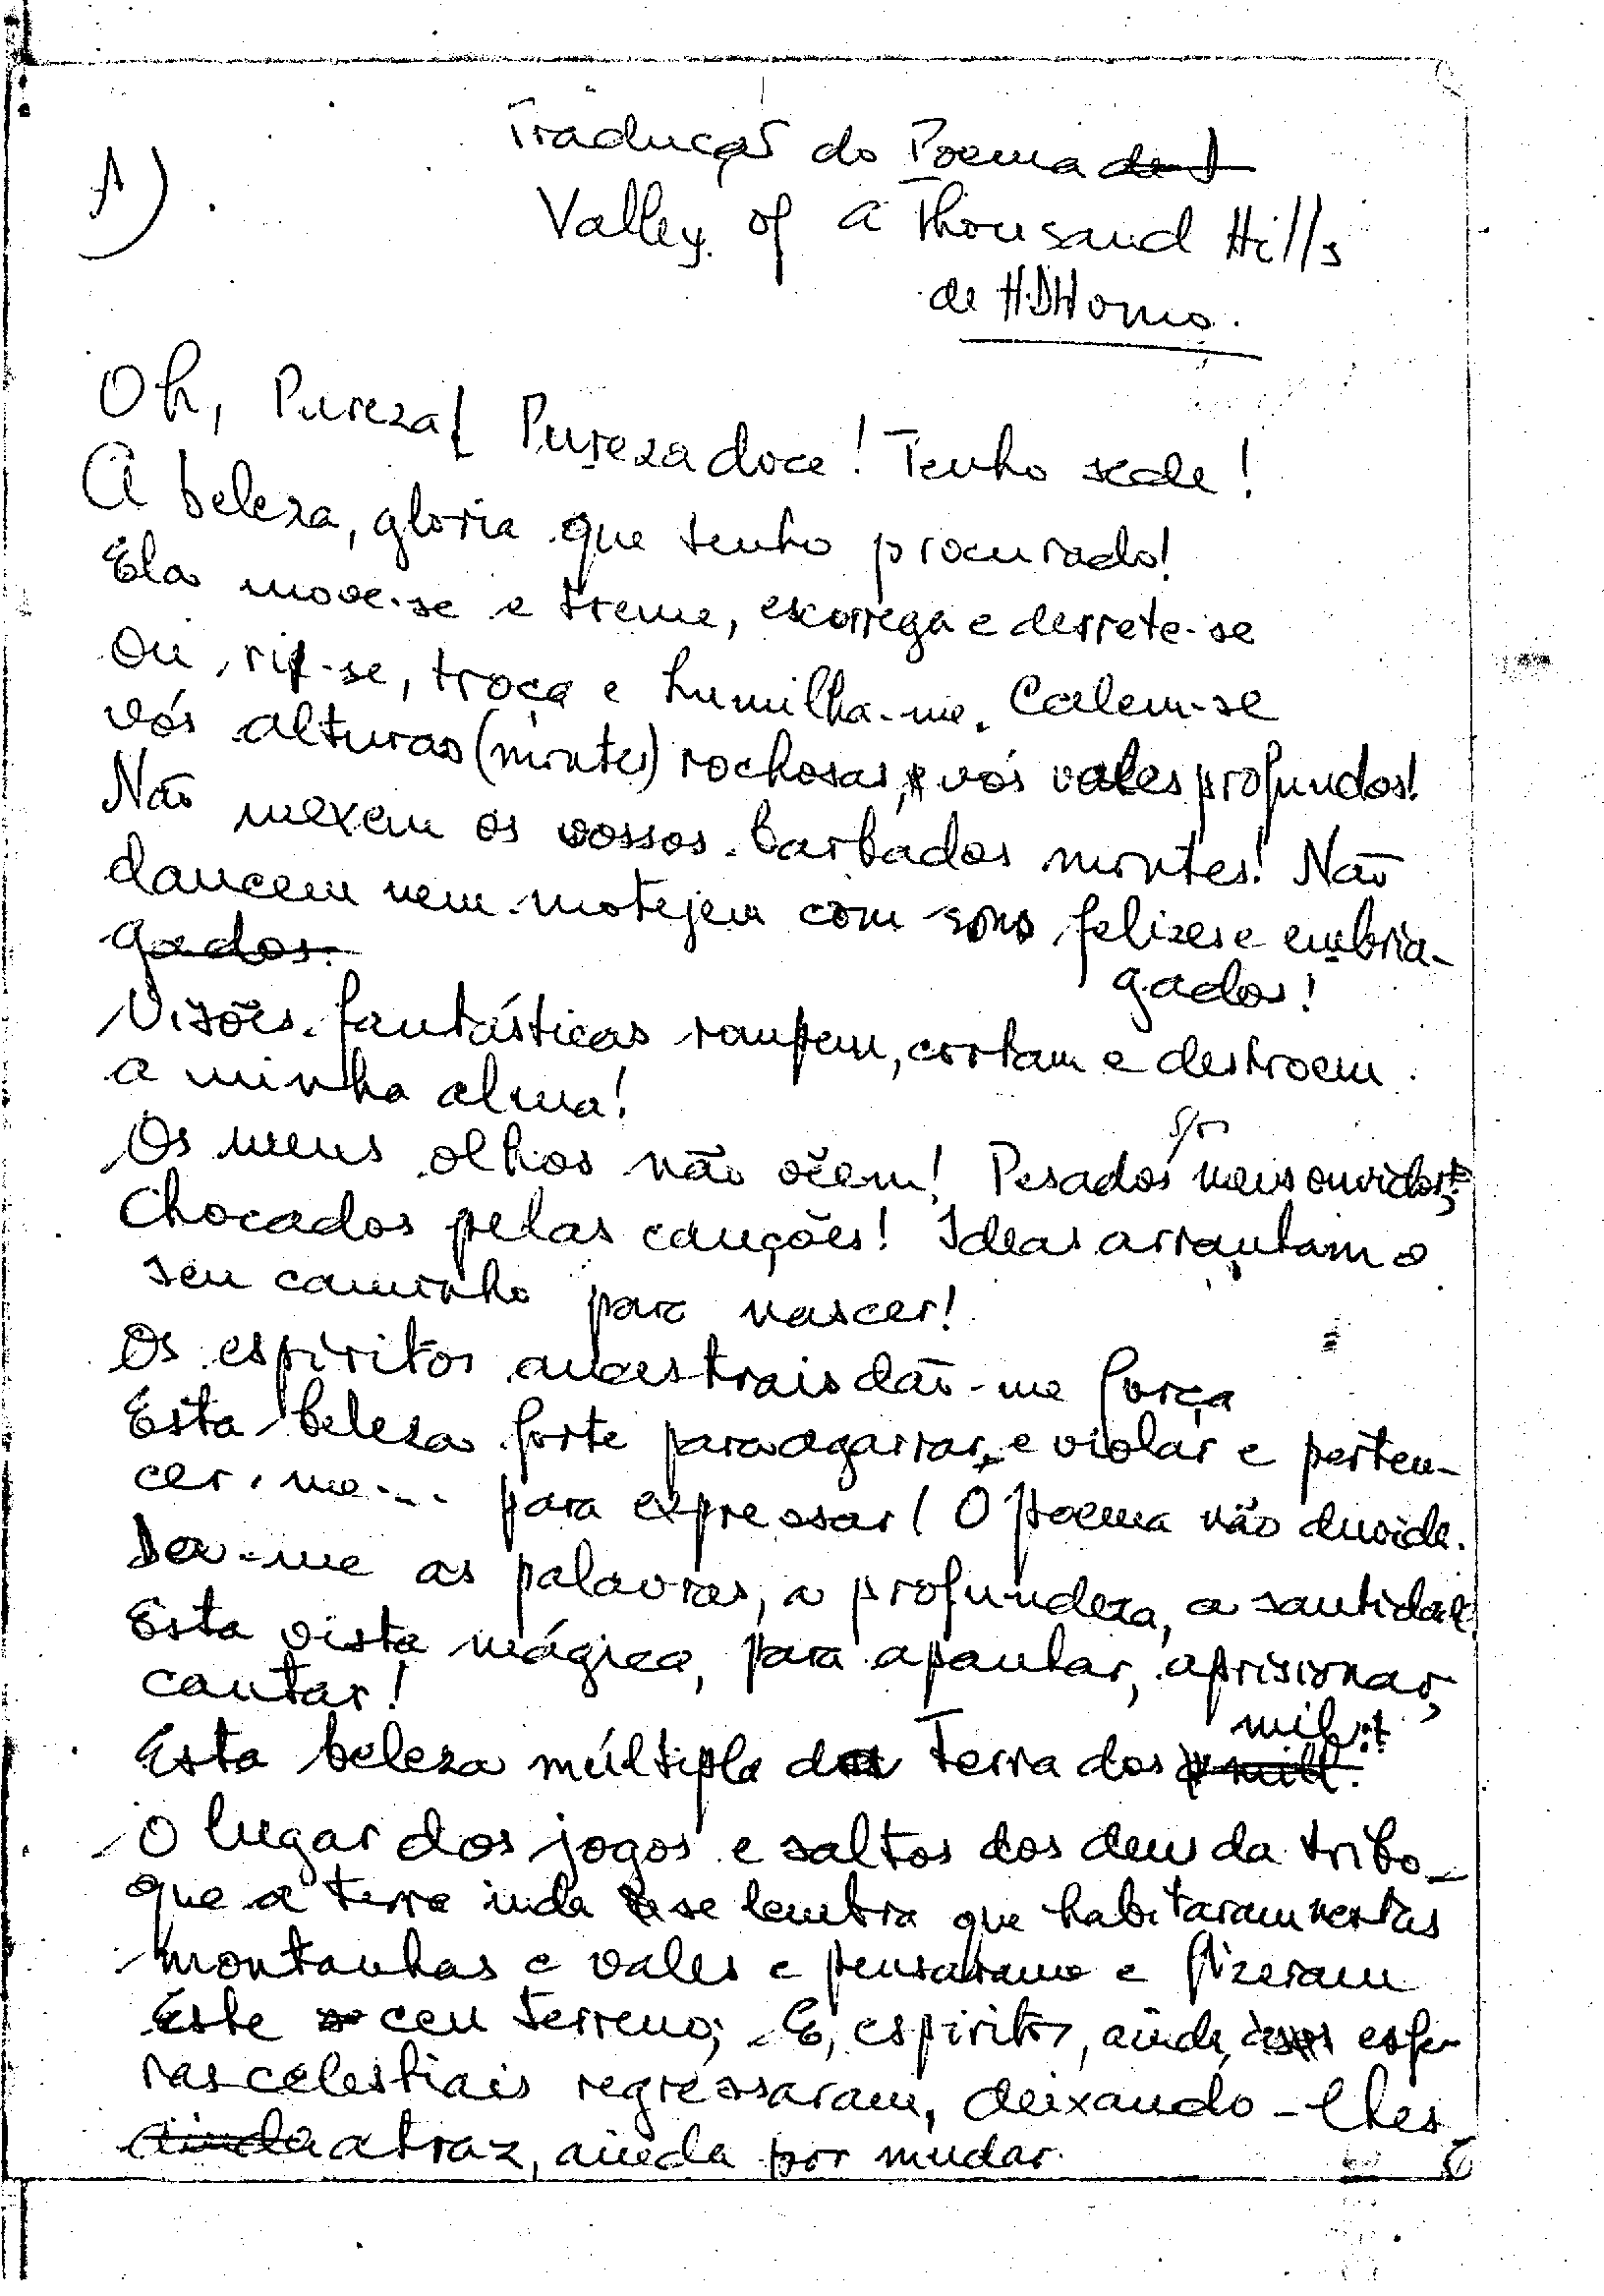 A)
Tradução do Poema
Valley of a Thousand Hills
de H.
Oh, Pureza! Pureza doce! Tenho sede!
A beleza, gloria que tenho procurado!
Ela move-se e treme, escorrega e derrete-se
Ou, ri-se, troça e humilha-me. Calem-se
vós alturas (montes) rochosas, vós vales profundos!
Não mexem os vossos barbados montes! Não
dancem nem motejem com sons felizes e embria-
gados.
gados!
Visões fantásticas rompem, cortam e destroem
a minha alma!
Os meus olhos não vêem! Pesados meus ouvidos
Chocados pelas canções! Ideas arrantam o
seu caminho para nascer!
Os espiritos ancestrais dão-me força
Esta beleza forte para agarrar, e violar e perten-
cer-me... para expressar! O poema não duvide.
Der-me as palavras, a profundeza, a santidade
Esta vista mágica, para apanhar, aprisionar,
cantar!
mil!
Esta beleza múltipla da Terra dos mill.
O lugar dos jogos e saltos dos deus da tribo -
que a terra inda se lembra que habitaram nestas
montanhas e vales e pensaram e fizeram
Este ceu terreno; E, espiritos, ainda, esfe-
ras celestiais regressaram, deixando-lhes
ainda atraz, ainda por mudar.